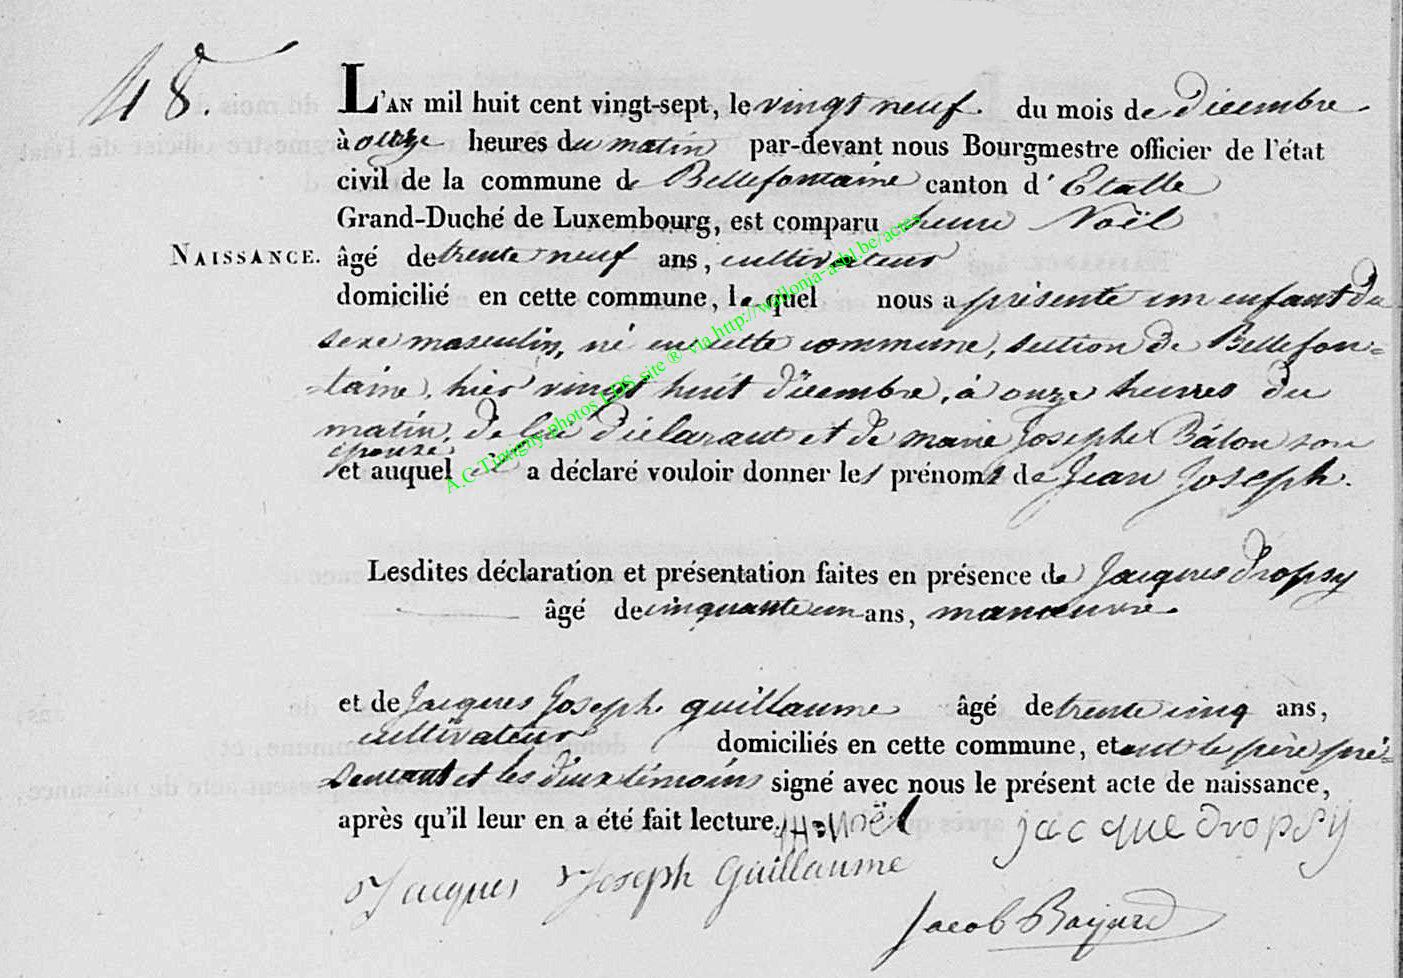 48.
L'AN mil huit cent vingt-sept, le vingt neuf du mois de Décembre
à onze heures du matin par-devant nous Bourgmestre officier de l'état
civil de la commune de Bellefontaine canton d'Etalle
Grand-Duché de Luxembourg, est comparu henri Noël
NAISSANCE. âgé de trente neuf ans, cultivateur
domicilié en cette commune, le quel nous a présenté un enfant du
sexe masculin, né en cette commune, section de Bellefon=
=taine, hier vingt huit Décembre, à onze heures du
matin, de lui Déclarant et de marie Josephe Bâlon son
épouse,
et auquel il a déclaré vouloir donner les prénoms de Jean Joseph.
Lesdites déclaration et présentation faites en présence de Jacques Dropsy
âgé de cinquante un ans, manœuvre
et de Jacques Joseph guillaume âgé de trente cinq ans,
cultivateur domiciliés en cette commune, et ont le père pré=
sentant et les deux témoins signé avec nous le présent acte de naissance,
après qu'il leur en a été fait lecture. H:Noël jacque dropsy
Jacques Joseph Guillaume
Jacob Bayard
A.C Tintigny photos LDS site ® via http://wallonia-asbl.be/actes